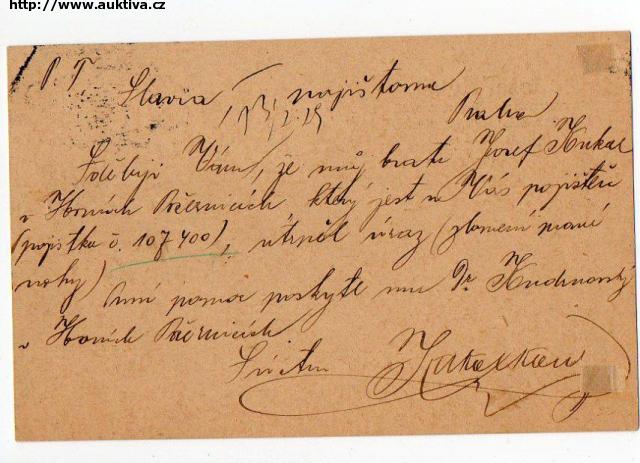 http://www.auktiva.cz
P. T.
Slavia pojišťovna
Praha
Vám, že můj bratr Josef
v Horních Počernicích který jest u Vás pojištěn
(pojistka č. 107400), utrpěl úraz (zlomení pravé
nohy) první pomoc poskytl mu Dr.
v Horních Počernicích
S úctou